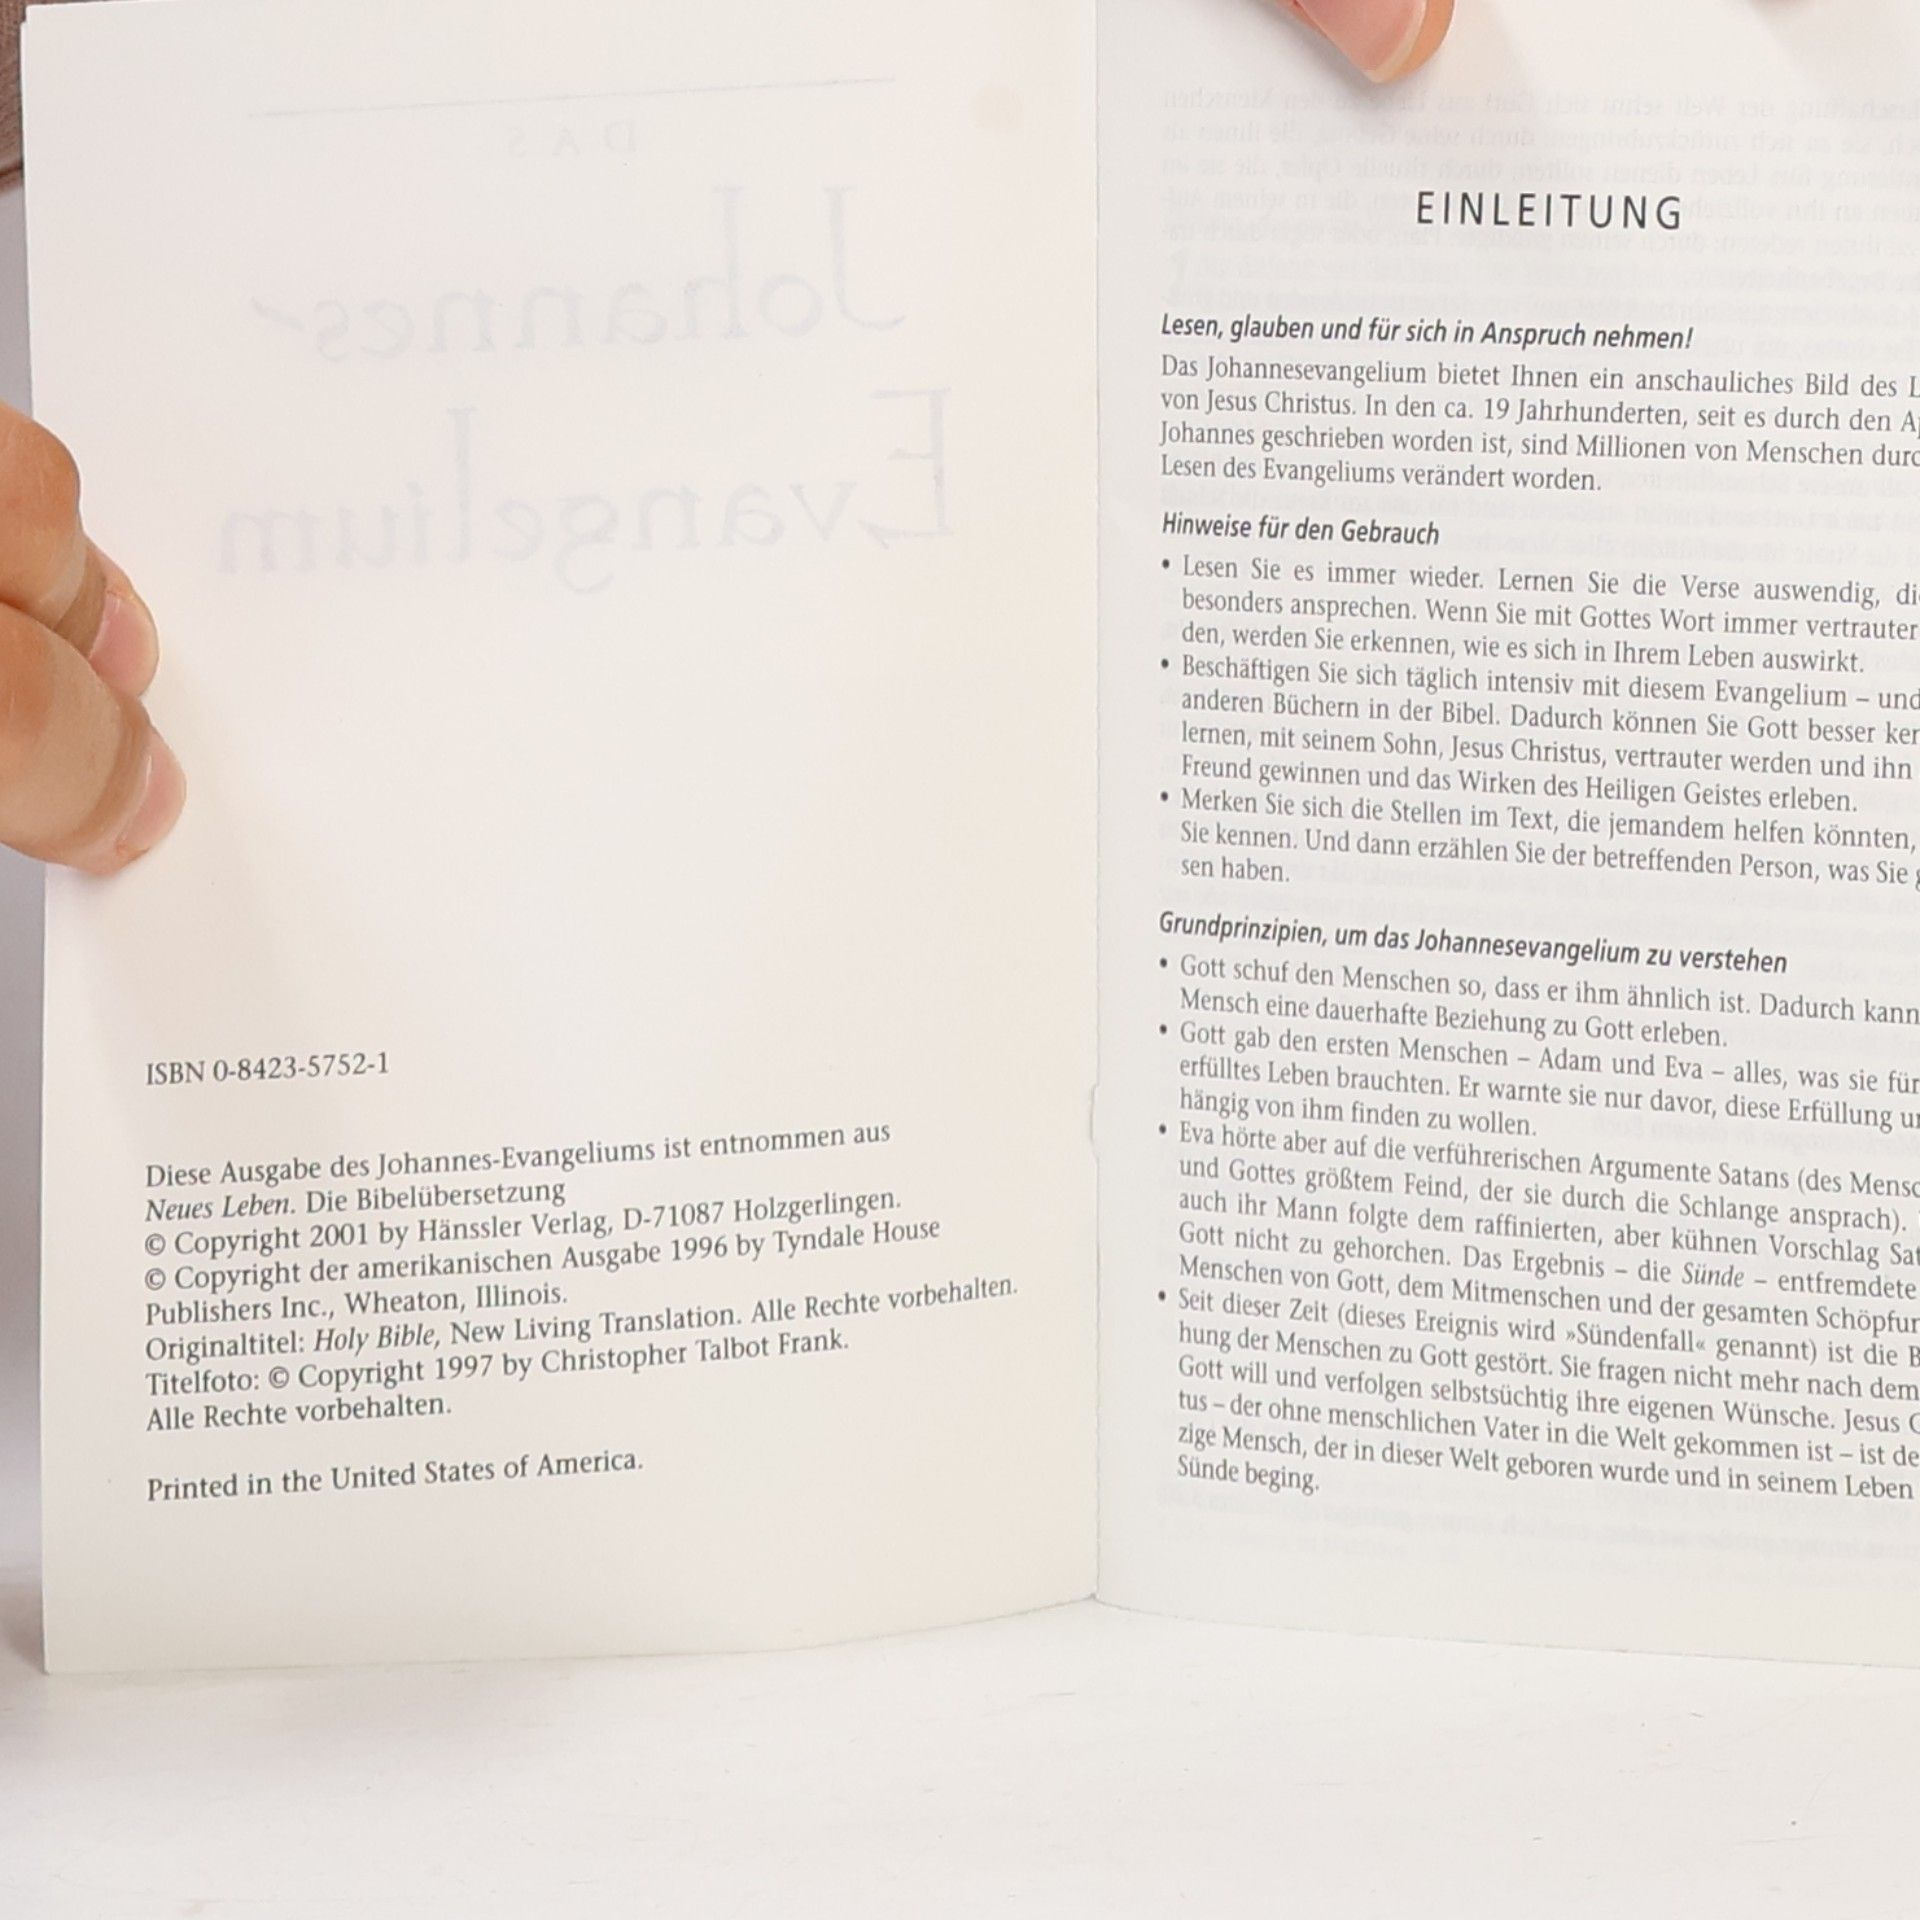 ISBN 0-8423-5752-1
Diese Ausgabe des Johannes-Evangeliums ist entnommen aus
Neues Leben. Die Bibelübersetzung
© Copyright 2001 by Hänssler Verlag, D-71087 Holzgerlingen.
© Copyright der amerikanischen Ausgabe 1996 by Tyndale House
Publishers Inc., Wheaton, Illinois.
Originaltitel: Holy Bible, New Living Translation. Alle Rechte vorbehalten.
Titelfoto: © Copyright 1997 by Christopher Talbot Frank.
Alle Rechte vorbehalten.
Printed in the United States of America.
EINLEITUNG
Lesen, glauben und für sich in Anspruch nehmen!
Das Johannesevangelium bietet Ihnen ein anschauliches Bild des
von Jesus Christus. In den ca. 19 Jahrhunderten, seit es durch den
Johannes geschrieben worden ist, sind Millionen von Menschen
Lesen des Evangeliums verändert worden.
Hinweise für den Gebrauch
• Lesen Sie es immer wieder. Lernen Sie die Verse auswendig,
besonders ansprechen. Wenn Sie mit Gottes Wort immer vertrauter
den, werden Sie erkennen, wie es sich in Ihrem Leben auswirkt.
• Beschäftigen Sie sich täglich intensiv mit diesem Evangelium – und
anderen Büchern in der Bibel. Dadurch können Sie Gott besser
lernen, mit seinem Sohn, Jesus Christus, vertrauter werden und ihn
Freund gewinnen und das Wirken des Heiligen Geistes erleben.
• Merken Sie sich die Stellen im Text, die jemandem helfen könnten,
Sie kennen. Und dann erzählen Sie der betreffenden Person, was Sie
sen haben.
Grundprinzipien, um das Johannesevangelium zu verstehen
• Gott schuf den Menschen so, dass er ihm ähnlich ist. Dadurch kann
Mensch eine dauerhafte Beziehung zu Gott erleben.
• Gott gab den ersten Menschen – Adam und Eva – alles, was sie für
erfülltes Leben brauchten. Er warnte sie nur davor, diese Erfüllung
hängig von ihm finden zu wollen.
• Eva hörte aber auf die verführerischen Argumente Satans (des
und Gottes größtem Feind, der sie durch die Schlange ansprach).
auch ihr Mann folgte dem raffinierten, aber kühnen Vorschlag
Gott nicht zu gehorchen. Das Ergebnis – die Sünde – entfremdete
Menschen von Gott, dem Mitmenschen und der gesamten
• Seit dieser Zeit (dieses Ereignis wird »Sündenfall« genannt) ist die
hung der Menschen zu Gott gestört. Sie fragen nicht mehr nach dem
Gott will und verfolgen selbstsüchtig ihre eigenen Wünsche. Jesus
tus – der ohne menschlichen Vater in die Welt gekommen ist – ist
zige Mensch, der in dieser Welt geboren wurde und in seinem Leben
Sünde beging.